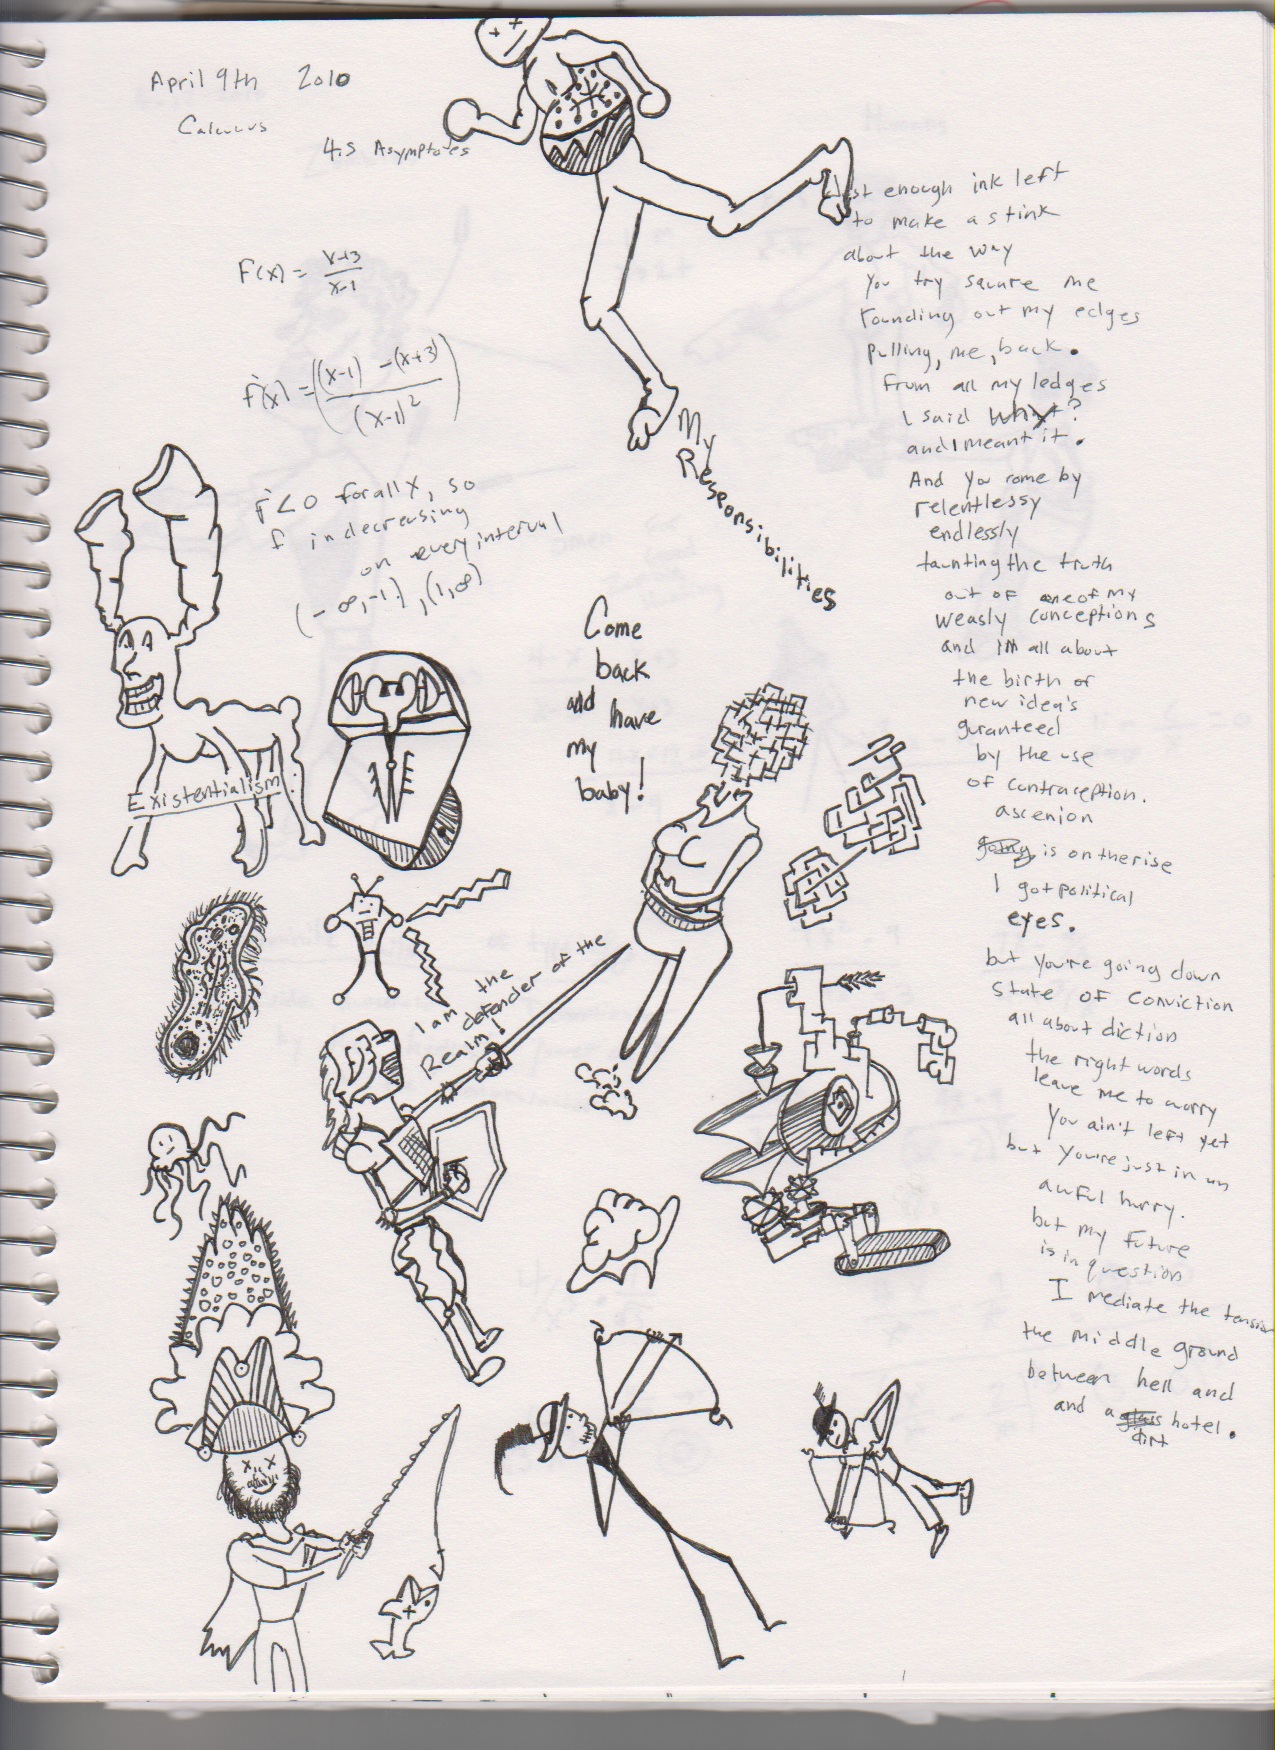 April 9th 2010
Calculus
4.5 Asymptotes
F(x) = x+3
x-1
f'(x) = ((x-1) - (x+3)
(x-1)²)
f' < 0 for all x, so
f in decreasing
on every interval
(-∞,-1), (1,∞)
Existentialism
My
Responsibilities
Come
back
and have
my
baby!
I am the
defender of the
Realm!
Just enough ink left
to make a stink
about the way
You try square me
rounding out my edges
pulling, me, back.
from all my ledges
I said why?
and I meant it.
And you come by
relentlessy
endlessly
taunting the truth
out of one of my
weasly conceptions
and I'm all about
the birth of
new idea's
guranteed
by the use
of contraception.
ascenion
going is on the rise
I got political
eyes.
but you're going down
state of conviction
all about diction
the right words
leave me to worry
You ain't left yet
but you're just in un
awful hurry.
but my future
is in question
I mediate the tension
the middle ground
between hell and
and a glass hotel.
dirt